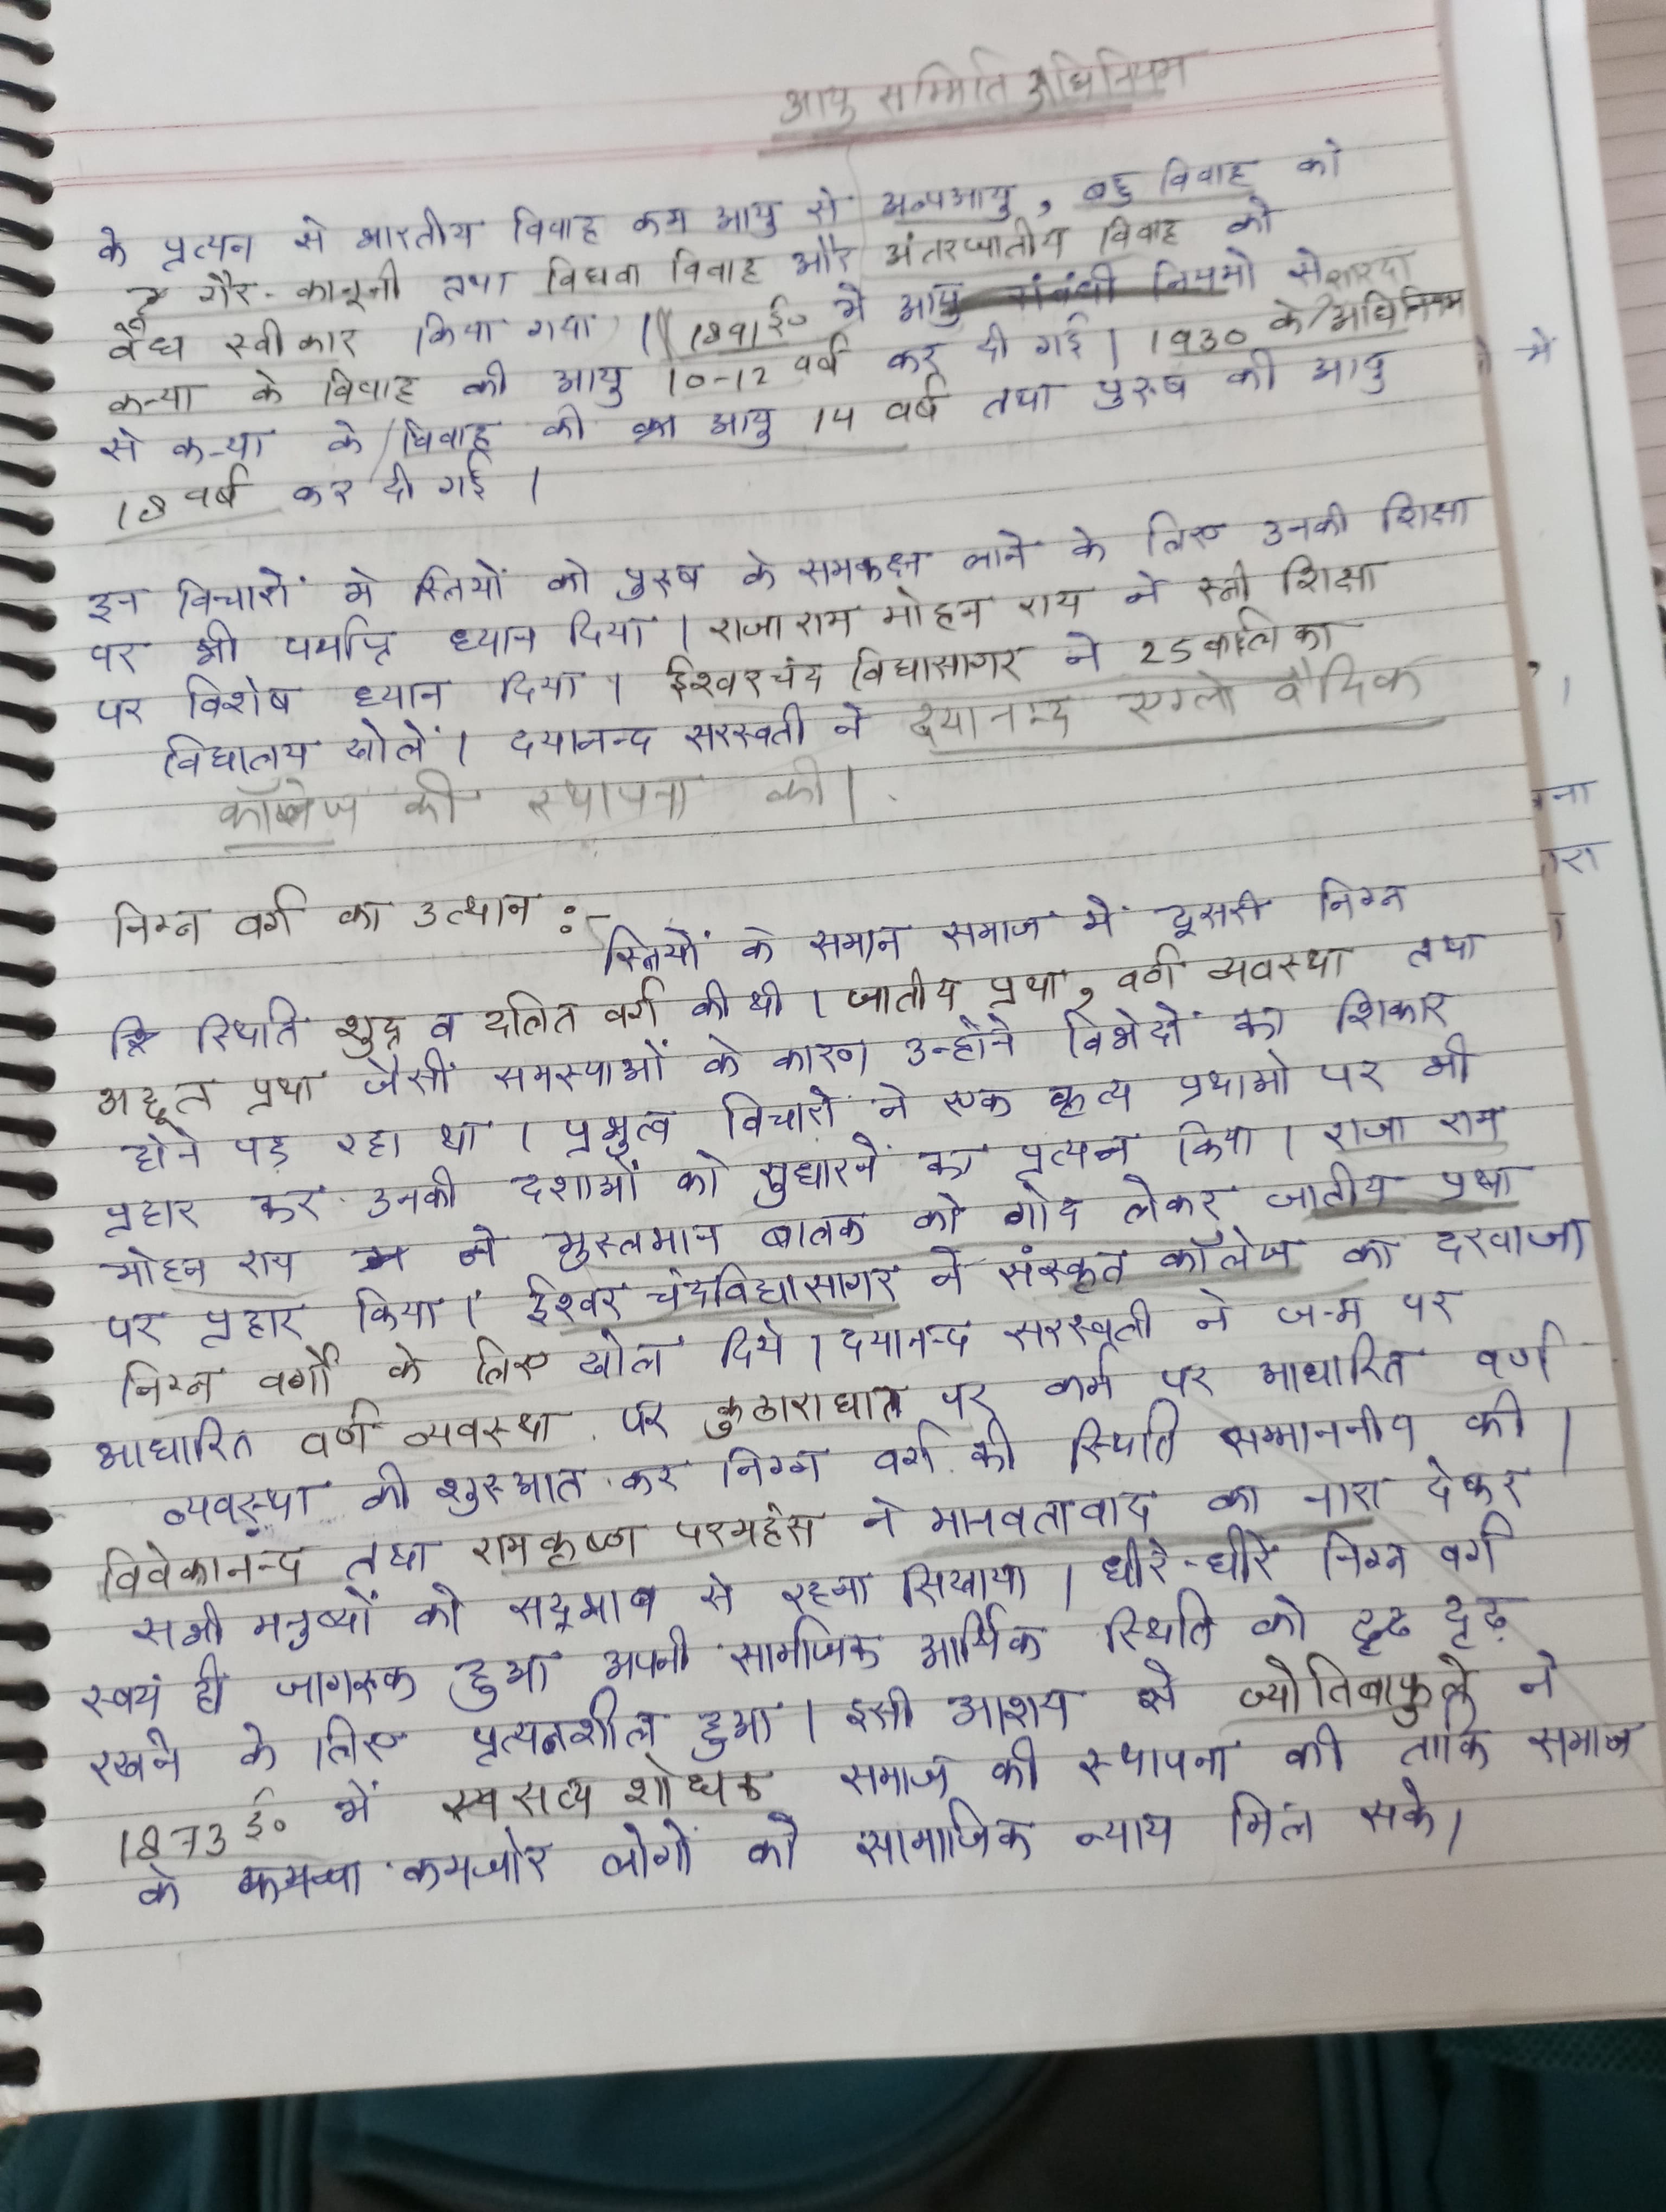 आयु सम्मिति अधिनियम
के प्रत्यन से भारतीय विवाह कम आयु से अल्पआयु, बहु विवाह को
गैर-कानूनी तथा विधवा विवाह और अंतरजातीय विवाह को
वैध स्वीकार किया गया। (1891 ई० मे आयु संबंधी नियमो से शारदा
कन्या के विवाह की आयु 10-12 वर्ष कर दी गई। 1930 के/अधिनियम
से कन्या के/विवाह की आयु 14 वर्ष तथा पुरुष की आयु
18 वर्ष कर दी गई।
इन विचारों मे स्त्रियों को पुरुष के समकक्ष लाने के लिए उनकी शिक्षा
पर भी पर्याप्त ध्यान दिया। राजा राम मोहन राय ने स्त्री शिक्षा
पर विशेष ध्यान दिया। ईश्वरचंद विद्यासागर ने 25
विद्यालय खोलें। दयानन्द सरस्वती ने दयानन्द एंग्लो वैदिक
कॉलेज की स्थापना की।
निम्न वर्ग का उत्थान :-
स्त्रियों के समान समाज मे दूसरी निम्न
स्थिति शुद्र व दलित वर्ग की थी। जातीय प्रथा, वर्ग व्यवस्था तथा
अछूत प्रथा जैसीं समस्याओं के कारण उन्होंने विभेदों का शिकार
होने पड़ रहा था। प्रभुत्व विचारों ने एक कृत्य प्रथाओ पर भी
प्रहार कर उनकी दशाओं को सुधारने का प्रत्यन किया। राजा राम
मोहन राय ने मुस्लमान बालक को गोद लेकर जातीय प्रथा
पर प्रहार किया। ईश्वर चंदविद्यासागर ने संस्कृत कॉलेज का दरवाजा
निम्न वर्गों के लिए खोल दिये। दयानन्द सरस्वती ने जन्म पर
आधारित वर्ण व्यवस्था पर कुठाराघात पर कर्म पर आधारित वर्ण
व्यवस्था की शुरुआत कर निम्न वर्ग की स्थिति सम्माननीय की।
विवेकानन्द तथा रामकृष्ण परमहंस ने मानवतावाद का नारा देकर
सभी मनुष्यों को सद्भाव से रहना सिखाया। धीरे-धीरे निम्न वर्ग
स्वयं ही जागरुक हुआ अपनी सामाजिक आर्थिक स्थिति को दृढ़
रखने के लिए प्रत्यनशील हुआ। इसी आशय से ज्योतिबाफुले ने
1873 ई० में सत्य शोधक समाज की स्थापना की ताकि समाज
के कमजोर लोगों को सामाजिक न्याय मिल सके।
में
ना
रा